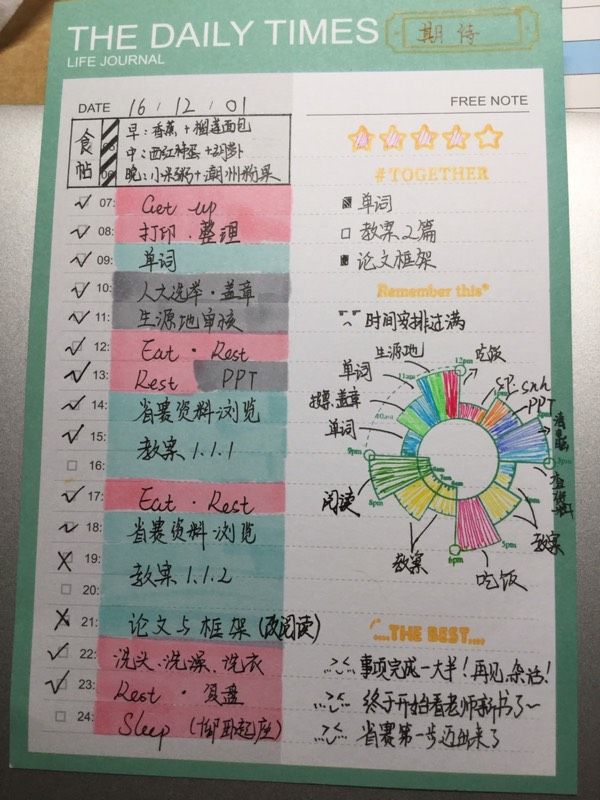 THE DAILY TIMES
LIFE JOURNAL
期待
DATE 16 / 12 / 01
FREE NOTE
食帖
早:香蕉+榴莲面包
中:西红柿蛋+胡萝卜
晚:小米粥+潮州粉果
07: Get up
08: 打印·整理
09: 单词
10: 人大选举·盖章
11: 生源地审核
12: Eat · Rest
13: Rest PPT
14: 省赛资料浏览
15: 教案1.1.1
16:
17: Eat · Rest
18: 省赛资料浏览
19: 教案1.1.2
20:
21: 论文与框架(改阅读)
22: 洗头、洗澡、洗衣
23: Rest · 复盘
24: Sleep (仰卧起座)
#TOGETHER
单词
教案2篇
论文框架
Remember this*
时间安排过满
生源地
12pm
吃饭
11am
单词
投票.盖章
10am
单词
9pm
阅读
8pm
PPT
3pm
教案
5pm
教案
6pm
吃饭
....THE BEST....
事项完成一大半!再见,杂活!
终于开始看老师新书了~
省赛第一步迈出来了